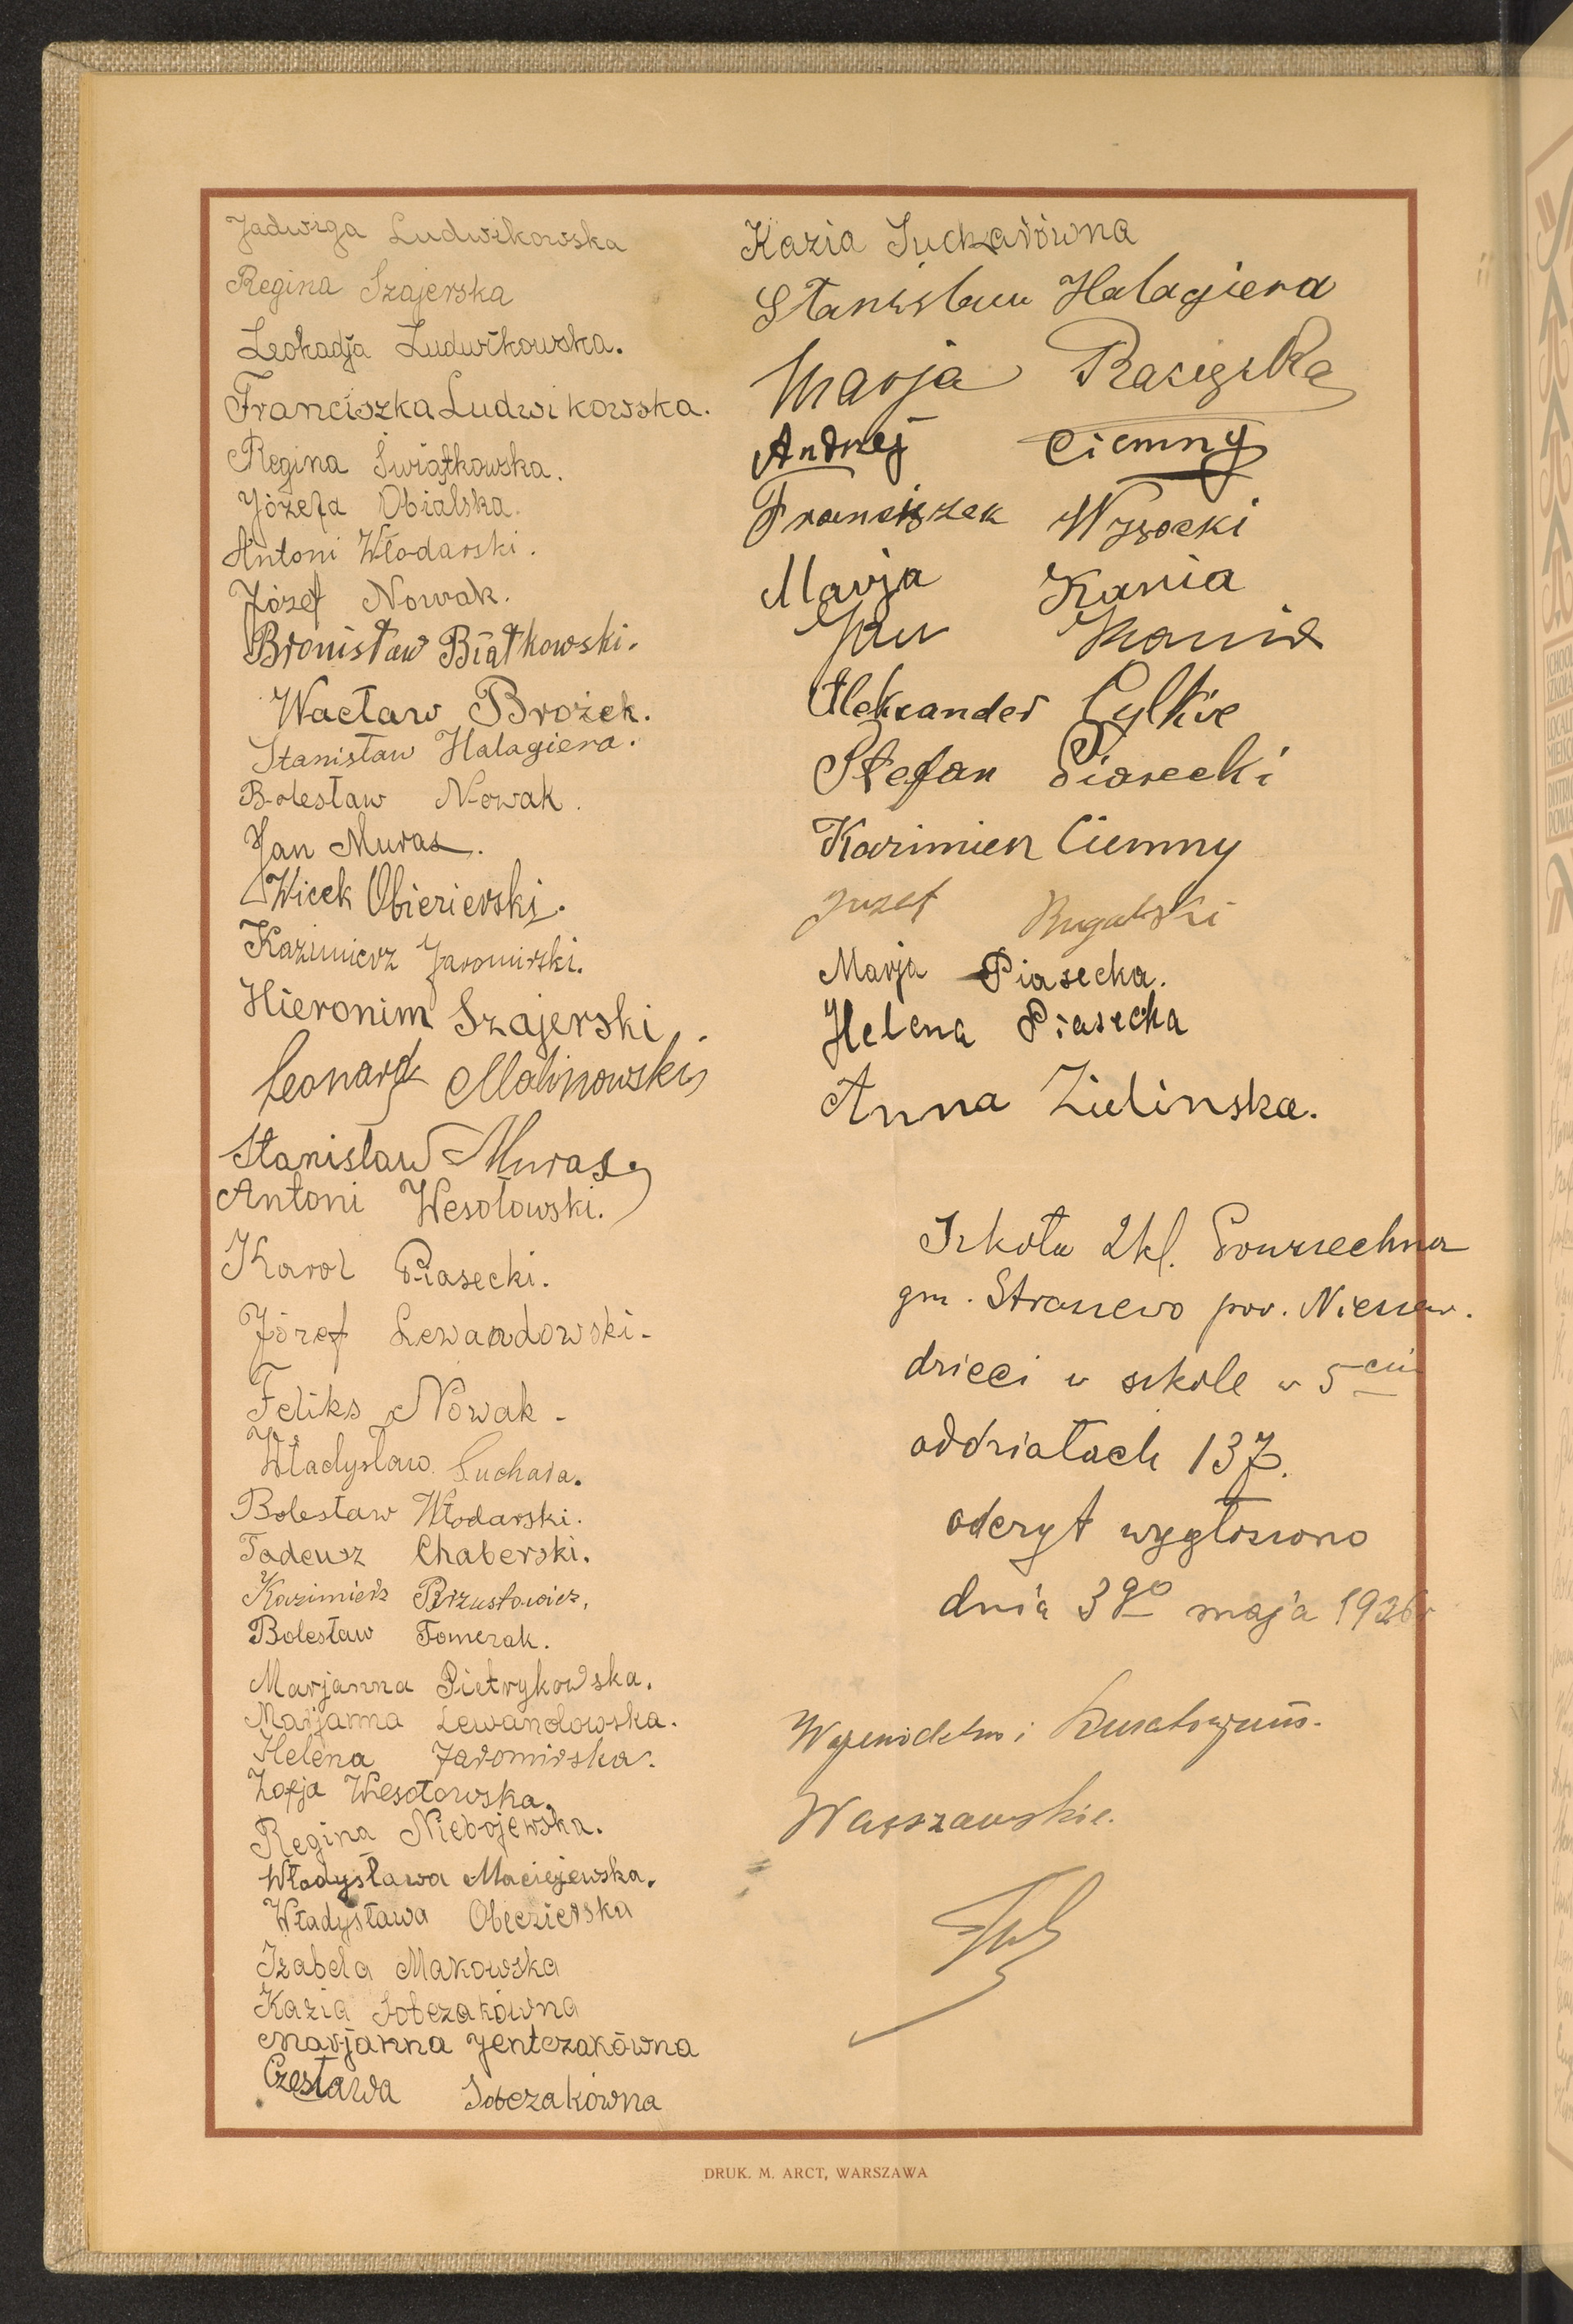 Jadwiga Ludwikowska
Regina Szajerska
Leokadja Ludwikowska.
Franciszka Ludwikowska.
Regina Świątkowska.
Józefa Obialska.
Antoni Włodarski.
Józef Nowak.
Bronisław Białkowski.
Wacław Brożek.
Stanisław Halagiera.
Bolesław Nowak.
Jan Muras.
Wicek Obierierski.
Kazimierz Jaromirski.
Hieronim Szajerski.
Leonard Malinowski
Stanisław Muras.
Antoni Wesołowski.
Karol Piasecki.
Józef Lewandowski.
Feliks Nowak.
Władysław Suchara.
Bolesław Włodarski.
Tadeusz Chaberski.
Kazimierz Brzustowicz.
Bolesław Tomczak.
Marjanna Pietrykowska.
Marjanna Lewandowska.
Helena Jaromirska.
Zofja Wesołowska.
Regina Niebojewska.
Władysława Maciejewska.
Władysława Obiezierska
Izabela Makowska
Kazia Sobczakówna
Marjanna Jentczakówna
Czesława Sobczakówna
Kazia Sucharówna
Stanisław Halagiera
Marja
Andrzej Ciemny
Franciszek Wysocki
Marja Kania
Jan Kania
Aleksander
Stefan Piasecki
Kazimierz Ciemny
Juzef Rugalski
Marja Piasecka.
Helena Piasecka
Anna Zielinska.
Szkoła 2kl. Powszechna
gm. Straszewo pow. Nieszaw.
dzieci w szkole w 5-ciu
oddziałach 137.
odczyt wygłoszono
dnia 3go maja 1926r
Kuratorjum.
Warszawskie.
DRUK. M. ARCT, WARSZAWA